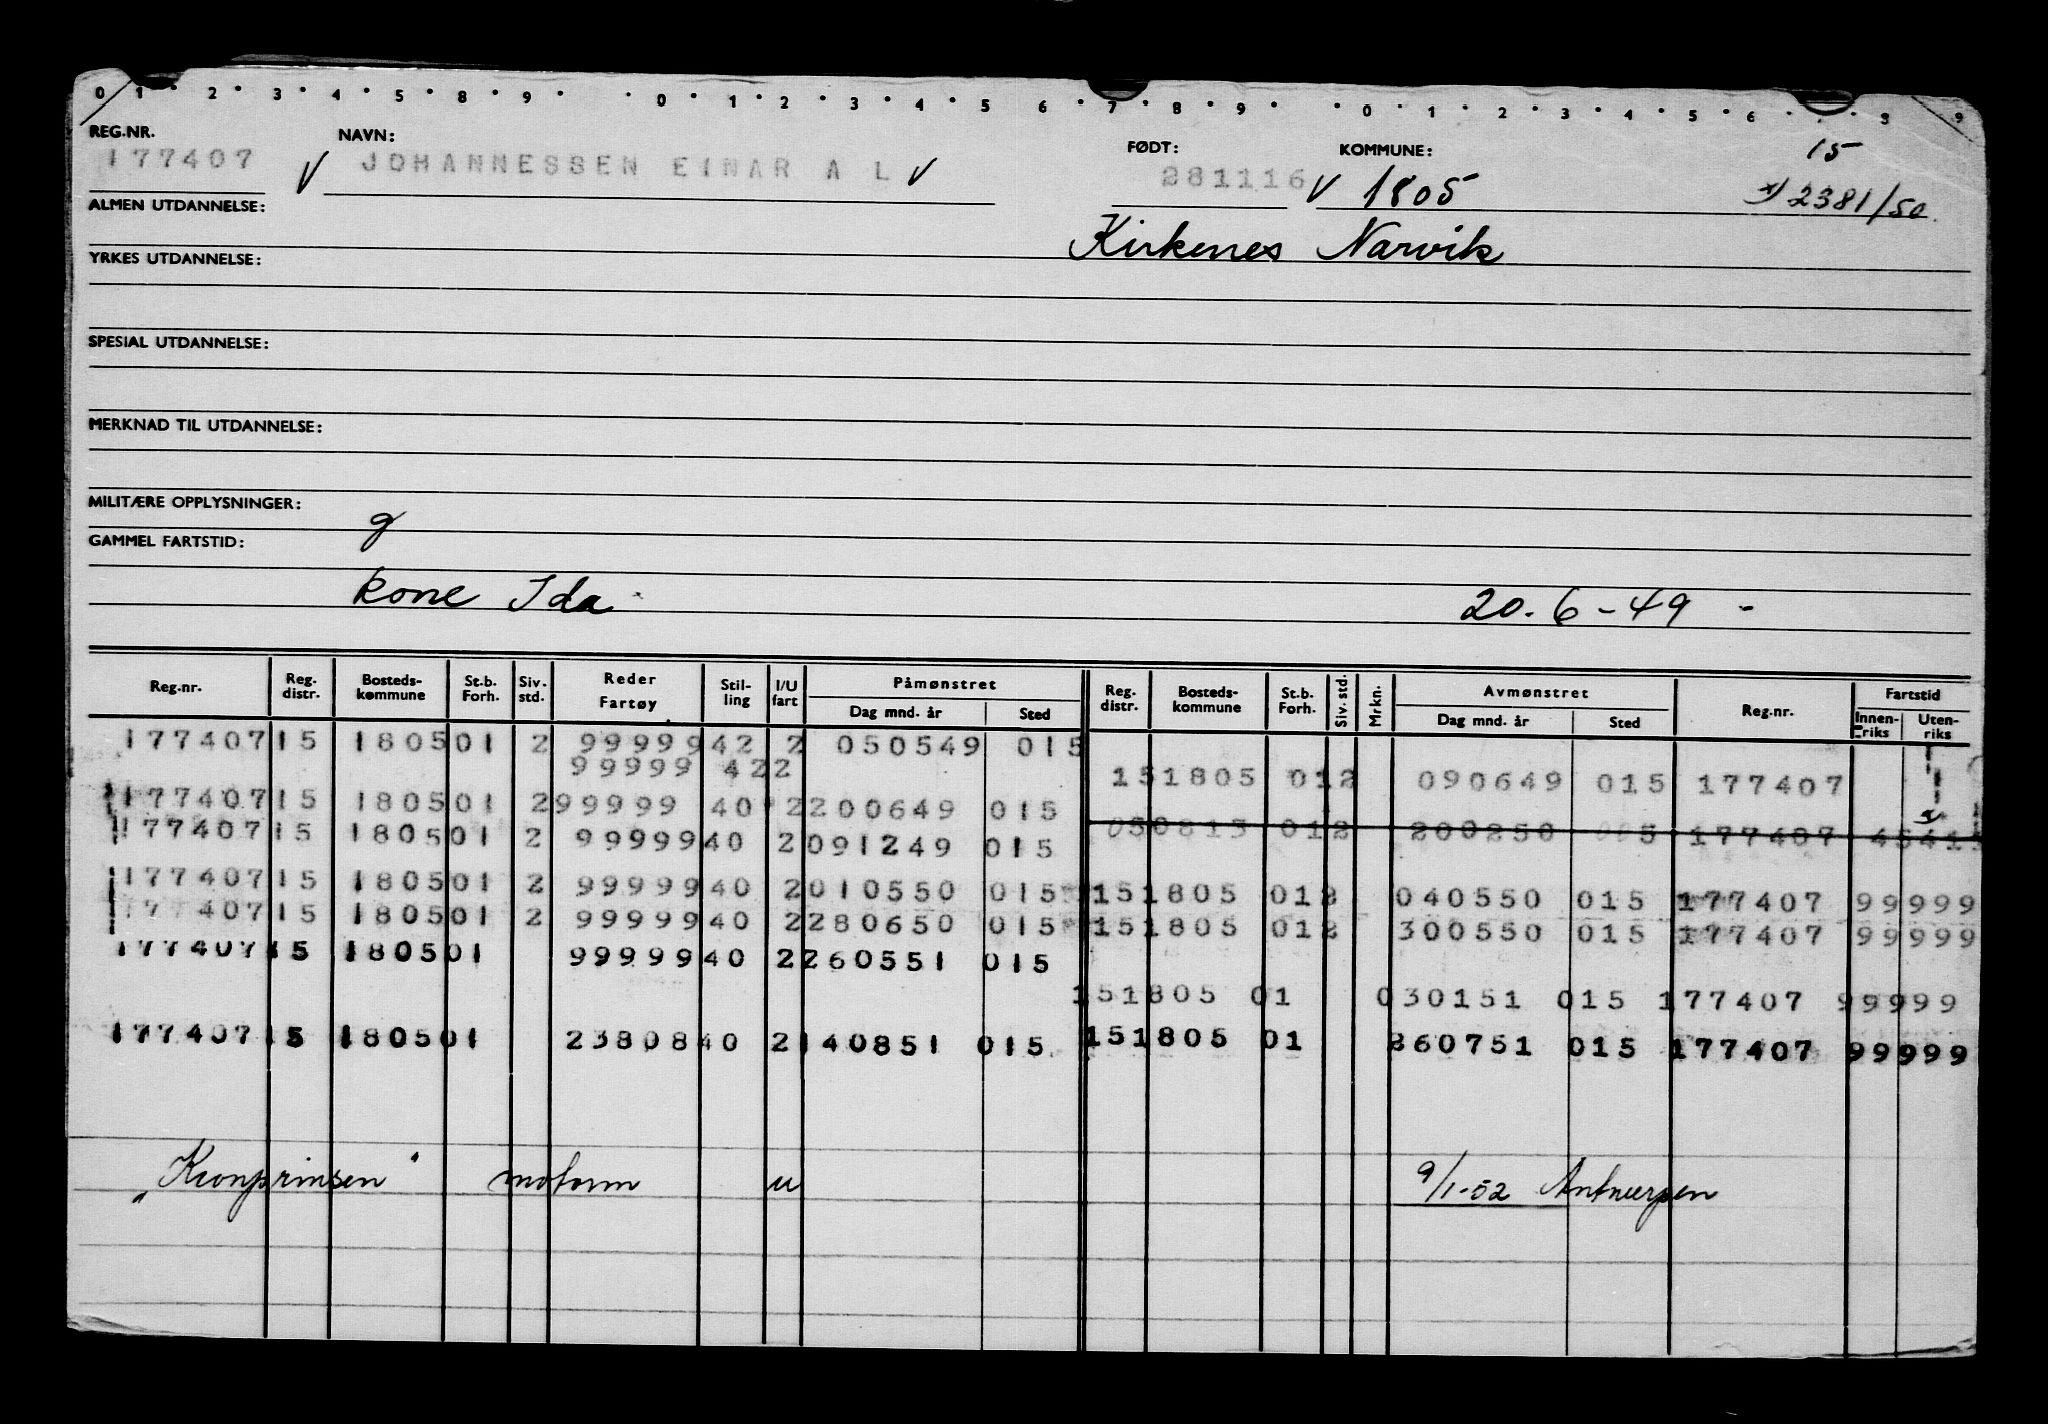 0 1 · 2 · 3 · 4 · 5 · 8 · 9 · · 0 · 1 · 2 · 3 · 4 · 5 6 · 7 · 8 · 9 · · 0 · 1 · 2 · 3 · 4 · 5 · 6 · · 9 9
REG.NR. NAVN: FØDT: KOMMUNE: 15
177407 V JOHANNESSEN EINAR A L V 281116 V 1805 x) 2381/50
ALMEN UTDANNELSE:
Kirkenes Narvik
YRKES UTDANNELSE:
SPESIAL UTDANNELSE:
MERKNAD TIL UTDANNELSE:
MILITÆRE OPPLYSNINGER: g
GAMMEL FARTSTID:
kone Ida 20. 6 - 49 -
Reg.nr. Reg. distr. Bosteds-kommune St.b. Forh. Siv. std. Reder Fartøy Stil-ling I/U fart Påmønstret Dag mnd. år Sted Reg. distr. Bosteds-kommune St.b. Forh. Siv. std. Mrkn. Avmønstret Dag mnd. år Sted Reg.nr. Fartstid Innen-riks Uten-riks
177407 15 1805 01 2 99999 42 2 050549 015
99999 42 2 15 1805 01 2 090649 015 177407
177407 15 1805 01 2 99999 40 2 200649 015
177407 15 1805 01 2 99999 40 2 091249 015 012 200250 177407
177407 15 1805 01 2 99999 40 2 010550 015 15 1805 01 2 040550 015 177407 99999
177407 15 1805 01 2 99999 40 2 280650 015 15 1805 01 2 300550 015 177407 99999
177407 15 1805 01 99999 40 2 260551 015
15 1805 01 030151 015 177407 99999
177407 15 1805 01 23808 40 2 140851 015 15 1805 01 260751 015 177407 99999
"Kronprinsen" motorm u 9/1-52 Antwerpen